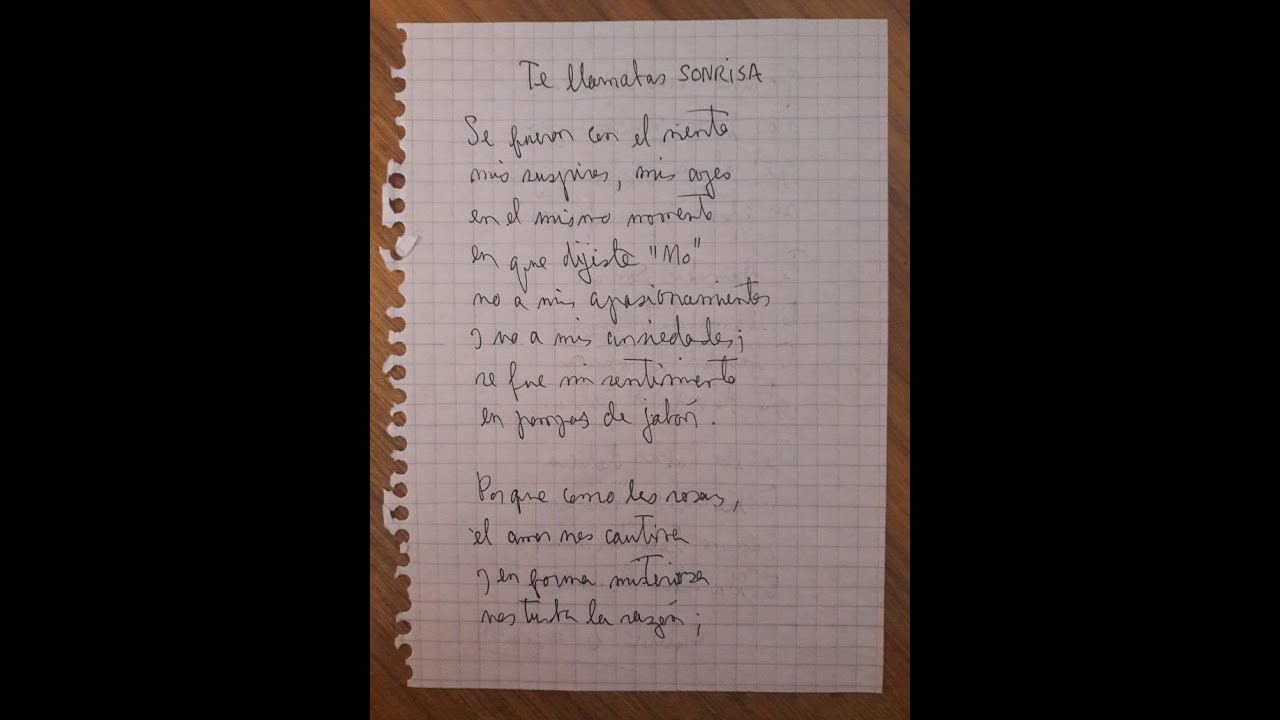 Te llamabas SONRISA
Se fueron con el viento
mis suspiros, mis ayes
en el mismo momento
en que dijiste "No"
no a mis apasionamientos
y no a mis ansiedades;
se fue mi sentimiento
en pompas de jabón.
Porque como las rosas,
el amor nos cautiva
y en forma misteriosa
nos turba la razón;